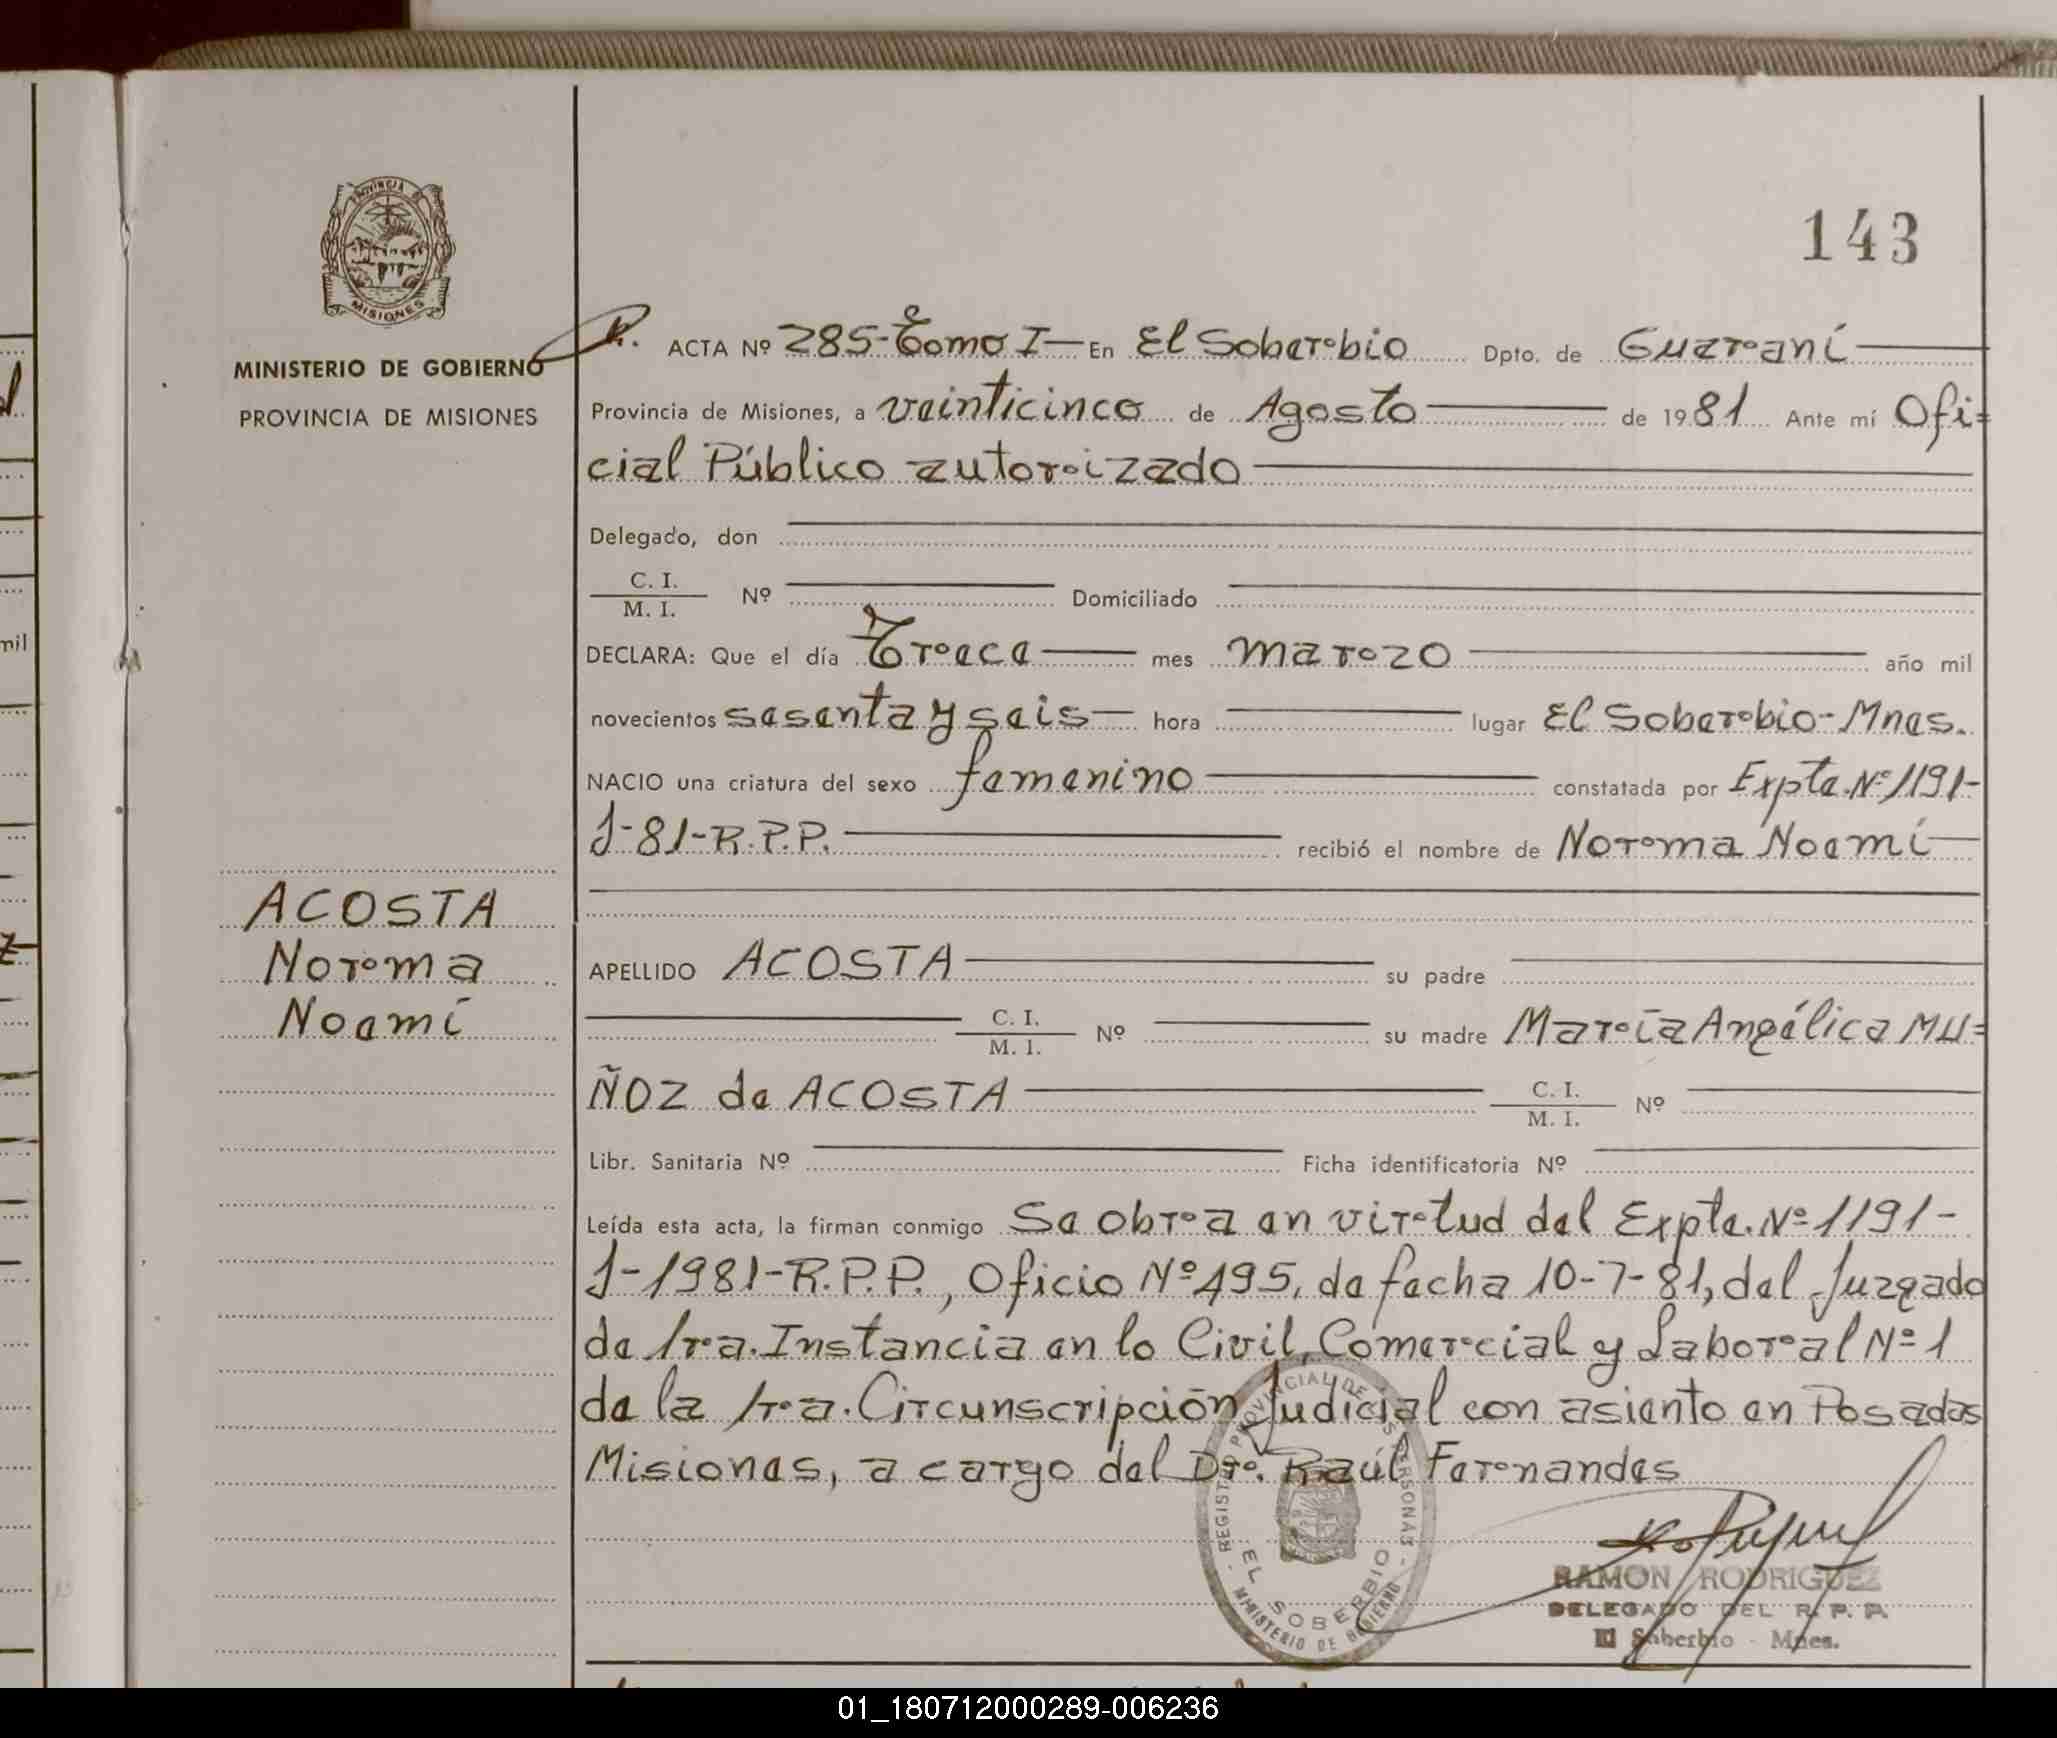 143
PROVINCIA DE
MISIONES
MINISTERIO DE GOBIERNO
PROVINCIA DE MISIONES
ACOSTA
Norma
Noemí
ACTA Nº 285-Tomo I- En El Soberbio Dpto. de Guaraní
Provincia de Misiones, a veinticinco de Agosto de 1981 Ante mí Ofi=
cial Público autorizado
Delegado, don
C. I.
M. I. Nº Domiciliado
DECLARA: Que el día Trece mes marzo año mil
novecientos sesenta y seis hora lugar El Soberbio-Mnes.
NACIO una criatura del sexo femenino constatada por Expte.Nº1191-
J-81-R.P.P. recibió el nombre de Norma Noemí
APELLIDO ACOSTA su padre
C. I.
M. I. Nº su madre María Angélica MU=
ÑOZ de ACOSTA C. I.
M. I. Nº
Libr. Sanitaria Nº Ficha identificatoria Nº
Leída esta acta, la firman conmigo Se obra en virtud del Expte.Nº1191-
J-1981-R.P.P., Oficio Nº495, de fecha 10-7-81, del Juzgado
de 1ra. Instancia en lo Civil, Comercial y Laboral Nº1
de la 1ra. Circunscripción Judicial con asiento en Posadas
Misiones, a cargo del Dr. Raúl Fernandes
REGISTRO PROVINCIAL DE LAS PERSONAS
EL SOBERBIO
MINISTERIO DE GOBIERNO
RAMON RODRIGUEZ
DELEGADO DEL R. P. P.
El Soberbio - Mnes.
mil
01_180712000289-006236